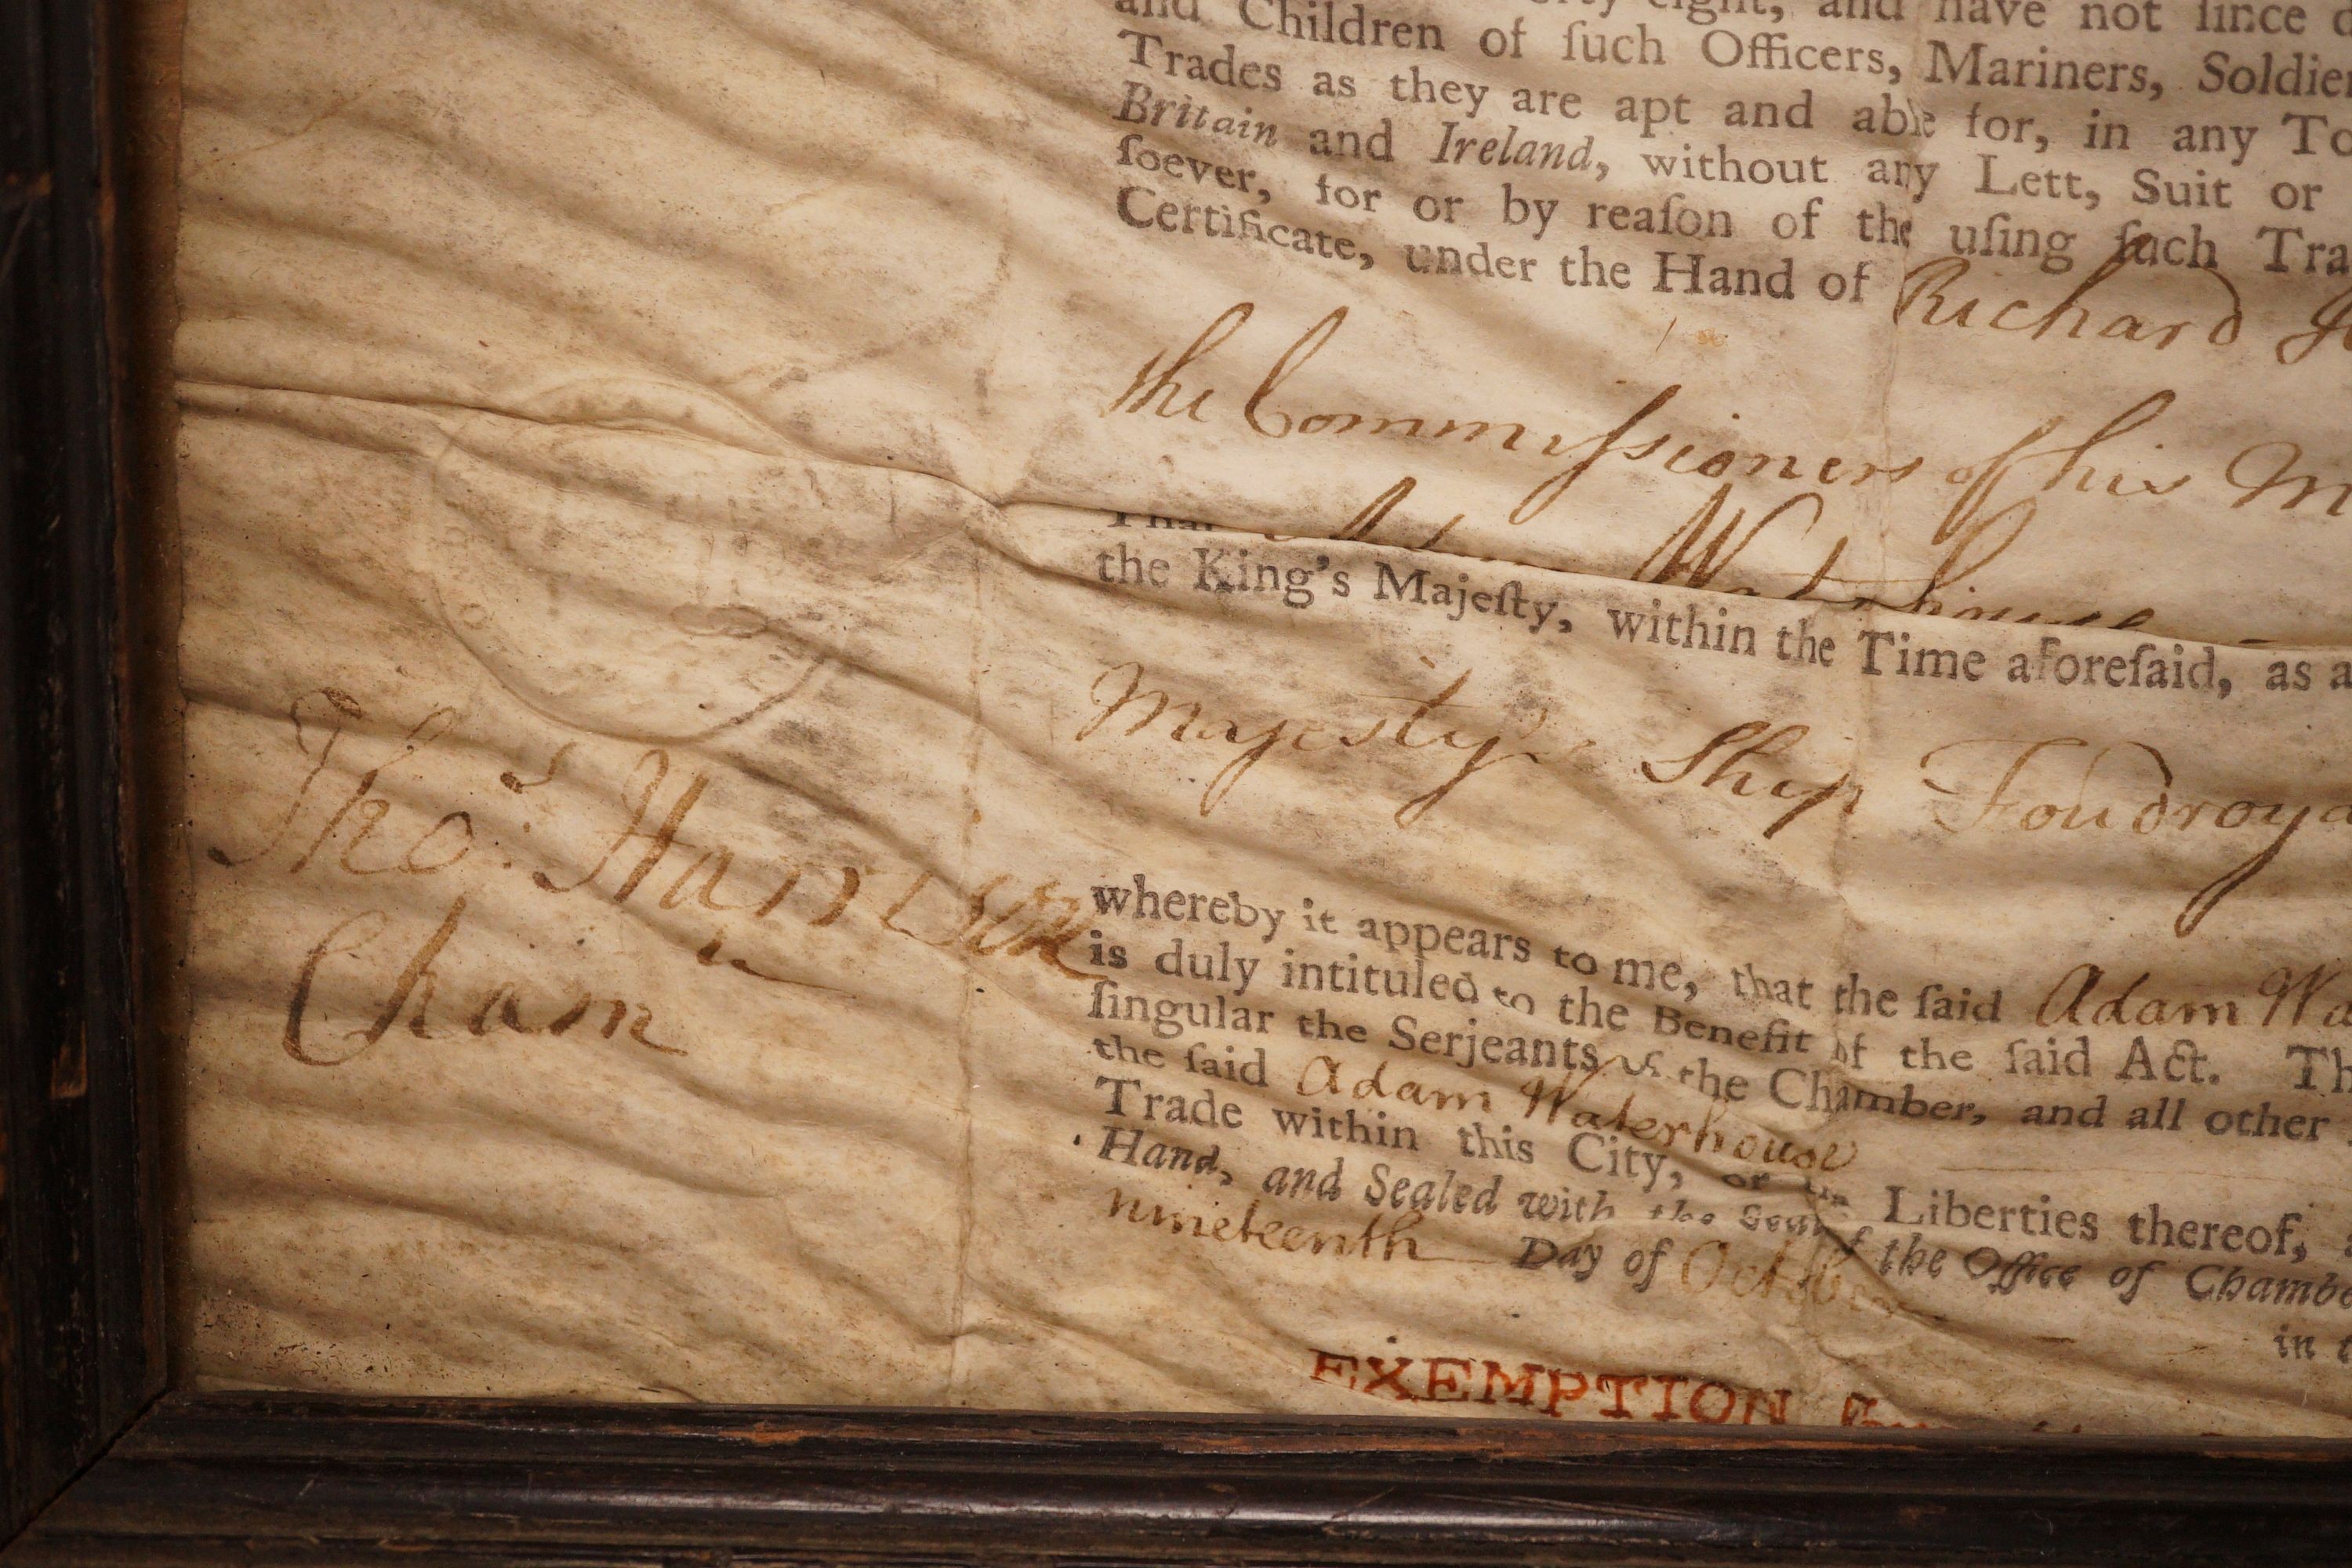 eight, and have not ſince
and Children of ſuch Officers, Mariners, Soldier
Trades as they are apt and able for, in any To
Britain and Ireland, without any Lett, Suit or
ſoever, for or by reaſon of the uſing ſuch Tra
Certificate, under the Hand of Richard
the Commiſsioners of his M
That Adam Waterhouse
the King's Majeſty, within the Time aforeſaid, as a
Majesty's Ship Foudroya
Thos. Harrison
Cham
whereby it appears to me, that the ſaid Adam Wa
is duly intituled to the Benefit of the ſaid Act. Th
ſingular the Serjeants of the Chamber, and all other
the ſaid Adam Waterhouse
Trade within this City, or the Liberties thereof,
Hand, and Sealed with the Seal of the Office of Chambe
nineteenth Day of October
in t
EXEMPTION